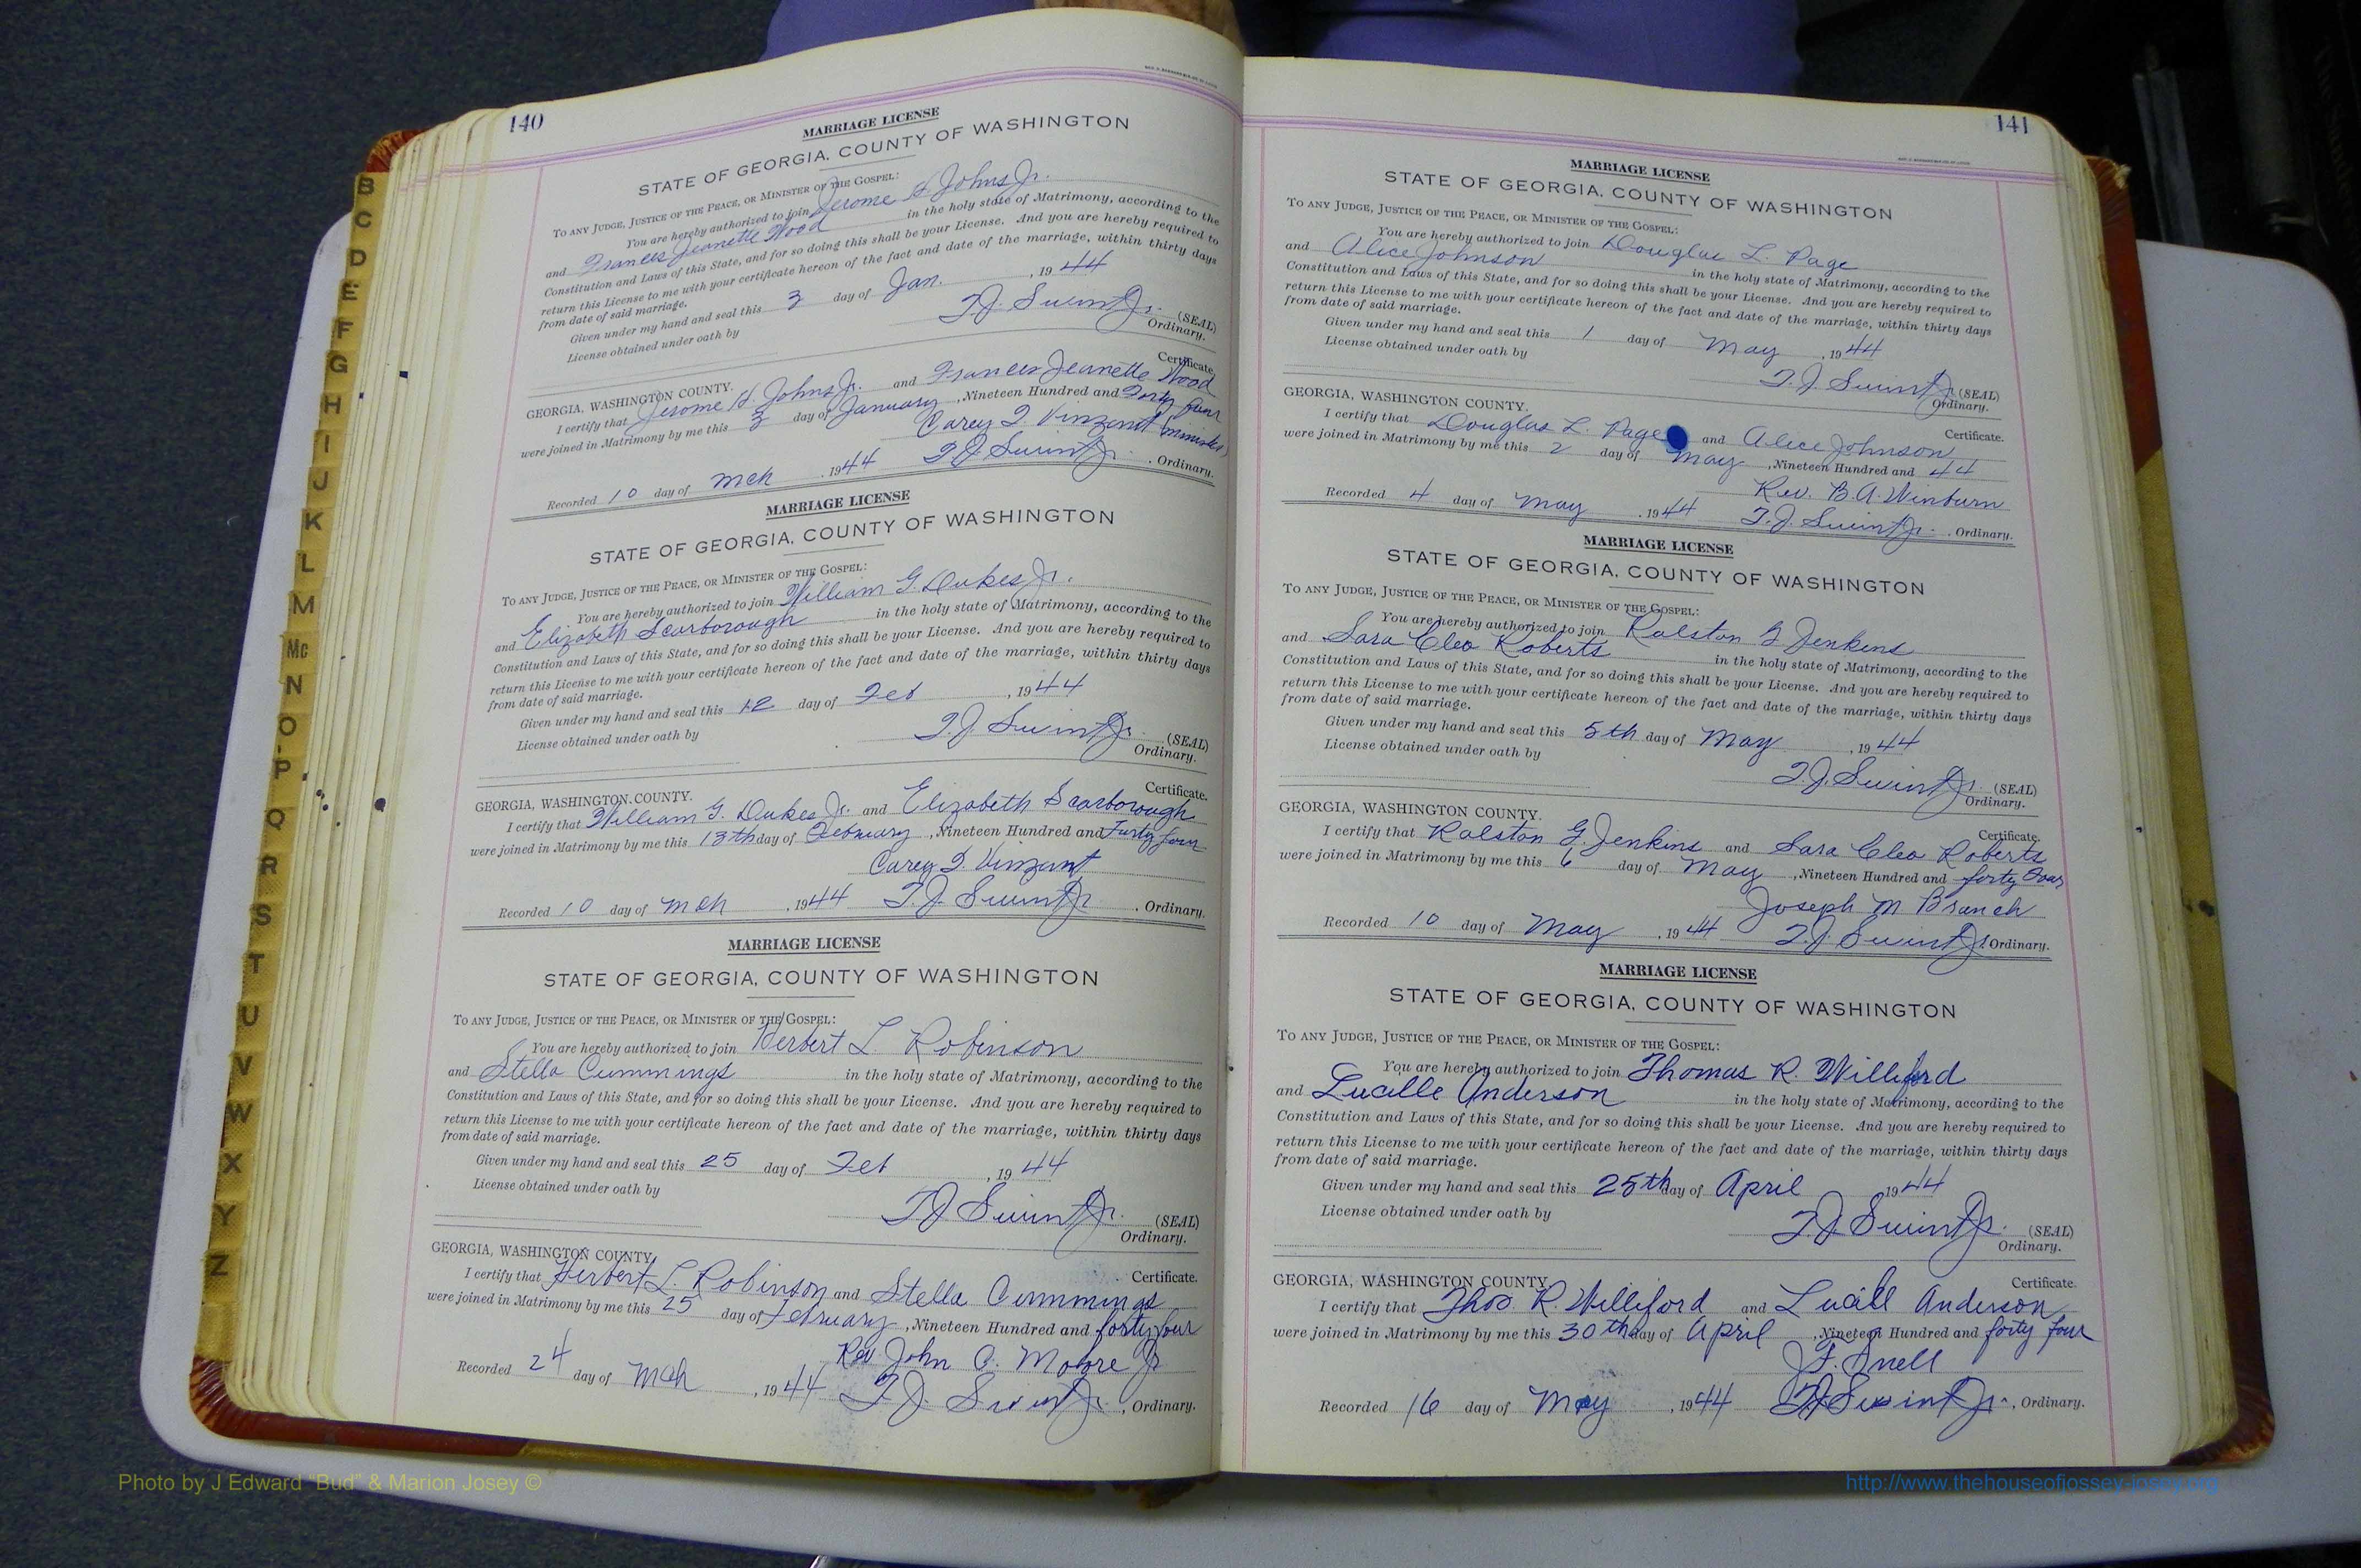 140
MARRIAGE LICENSE
STATE OF GEORGIA, COUNTY OF WASHINGTON
TO ANY JUDGE, JUSTICE OF THE PEACE, OR MINISTER OF THE GOSPEL:
You are hereby authorized to join Jerome H. Johns Jr.
and Frances Jeanette Wood in the holy state of Matrimony, according to the
Constitution and Laws of this State, and for so doing this shall be your License. And you are hereby required to
return this License to me with your certificate hereon of the fact and date of the marriage, within thirty days
from date of said marriage.
Given under my hand and seal this 3 day of Jan. , 1944
License obtained under oath by
T.J. Swint Jr. (SEAL)
Ordinary.
Certificate.
GEORGIA, WASHINGTON COUNTY.
I certify that Jerome H. Johns Jr. and Frances Jeanette Wood
were joined in Matrimony by me this 3 day of January , Nineteen Hundred and Forty four
Carey T. Vinzant Minister
Recorded 10 day of Mch , 1944 T.J. Swint Jr. , Ordinary.
MARRIAGE LICENSE
STATE OF GEORGIA, COUNTY OF WASHINGTON
TO ANY JUDGE, JUSTICE OF THE PEACE, OR MINISTER OF THE GOSPEL:
You are hereby authorized to join William G. Dukes Jr.
and Elizabeth Scarborough in the holy state of Matrimony, according to the
Constitution and Laws of this State, and for so doing this shall be your License. And you are hereby required to
return this License to me with your certificate hereon of the fact and date of the marriage, within thirty days
from date of said marriage.
Given under my hand and seal this 12 day of Feb , 1944
License obtained under oath by
T.J. Swint Jr. (SEAL)
Ordinary.
Certificate.
GEORGIA, WASHINGTON COUNTY.
I certify that William G. Dukes Jr. and Elizabeth Scarborough
were joined in Matrimony by me this 13th day of February , Nineteen Hundred and Forty four
Carey T. Vinzant
Recorded 10 day of Mch , 1944 T.J. Swint Jr , Ordinary.
MARRIAGE LICENSE
STATE OF GEORGIA, COUNTY OF WASHINGTON
TO ANY JUDGE, JUSTICE OF THE PEACE, OR MINISTER OF THE GOSPEL:
You are hereby authorized to join Herbert L. Robinson
and Stella Cummings in the holy state of Matrimony, according to the
Constitution and Laws of this State, and for so doing this shall be your License. And you are hereby required to
return this License to me with your certificate hereon of the fact and date of the marriage, within thirty days
from date of said marriage.
Given under my hand and seal this 25 day of Feb , 1944
License obtained under oath by
T.J. Swint Jr. (SEAL)
Ordinary.
GEORGIA, WASHINGTON COUNTY.
Certificate.
I certify that Herbert L. Robinson and Stella Cummings
were joined in Matrimony by me this 25 day of February , Nineteen Hundred and forty four
Rev John C. Moore Jr
Recorded 24 day of Mch , 1944 T.J. Swint Jr. , Ordinary.
141
MARRIAGE LICENSE
STATE OF GEORGIA, COUNTY OF WASHINGTON
TO ANY JUDGE, JUSTICE OF THE PEACE, OR MINISTER OF THE GOSPEL:
You are hereby authorized to join Douglas L. Page
and Alice Johnson in the holy state of Matrimony, according to the
Constitution and Laws of this State, and for so doing this shall be your License. And you are hereby required to
return this License to me with your certificate hereon of the fact and date of the marriage, within thirty days
from date of said marriage.
Given under my hand and seal this 1 day of May , 1944
License obtained under oath by
T.J. Swint Jr (SEAL)
Ordinary.
GEORGIA, WASHINGTON COUNTY.
Certificate.
I certify that Douglas L. Page and Alice Johnson
were joined in Matrimony by me this 2 day of May , Nineteen Hundred and 44
Rev. B.A. Winburn
Recorded 4 day of May , 1944 T.J. Swint Jr. , Ordinary.
MARRIAGE LICENSE
STATE OF GEORGIA, COUNTY OF WASHINGTON
TO ANY JUDGE, JUSTICE OF THE PEACE, OR MINISTER OF THE GOSPEL:
You are hereby authorized to join Ralston G Jenkins
and Sara Cleo Roberts in the holy state of Matrimony, according to the
Constitution and Laws of this State, and for so doing this shall be your License. And you are hereby required to
return this License to me with your certificate hereon of the fact and date of the marriage, within thirty days
from date of said marriage.
Given under my hand and seal this 5th day of May , 1944
License obtained under oath by
T.J. Swint Jr. (SEAL)
Ordinary.
GEORGIA, WASHINGTON COUNTY.
Certificate.
I certify that Ralston G. Jenkins and Sara Cleo Roberts
were joined in Matrimony by me this 6 day of May , Nineteen Hundred and forty four
Joseph M Branch
Recorded 10 day of May , 1944 T.J. Swint Jr. Ordinary.
MARRIAGE LICENSE
STATE OF GEORGIA, COUNTY OF WASHINGTON
TO ANY JUDGE, JUSTICE OF THE PEACE, OR MINISTER OF THE GOSPEL:
You are hereby authorized to join Thomas R. Williford
and Lucille Anderson in the holy state of Matrimony, according to the
Constitution and Laws of this State, and for so doing this shall be your License. And you are hereby required to
return this License to me with your certificate hereon of the fact and date of the marriage, within thirty days
from date of said marriage.
Given under my hand and seal this 25th day of April 1944
License obtained under oath by
T.J. Swint Jr. (SEAL)
Ordinary.
GEORGIA, WASHINGTON COUNTY.
Certificate.
I certify that Thos. R. Williford and Lucill Anderson
were joined in Matrimony by me this 30th day of April , Nineteen Hundred and forty four
J.F. Snell
Recorded 16 day of May , 1944 T.J. Swint Jr. , Ordinary.
B
C
D
E
F
G
H
I
J
K
L
M
Mc
N
O
P
Q
R
S
T
U
V
W
X
Y
Z
Photo by J Edward "Bud" & Marion Josey ©
http://www.thehouseofjossey-josey.org